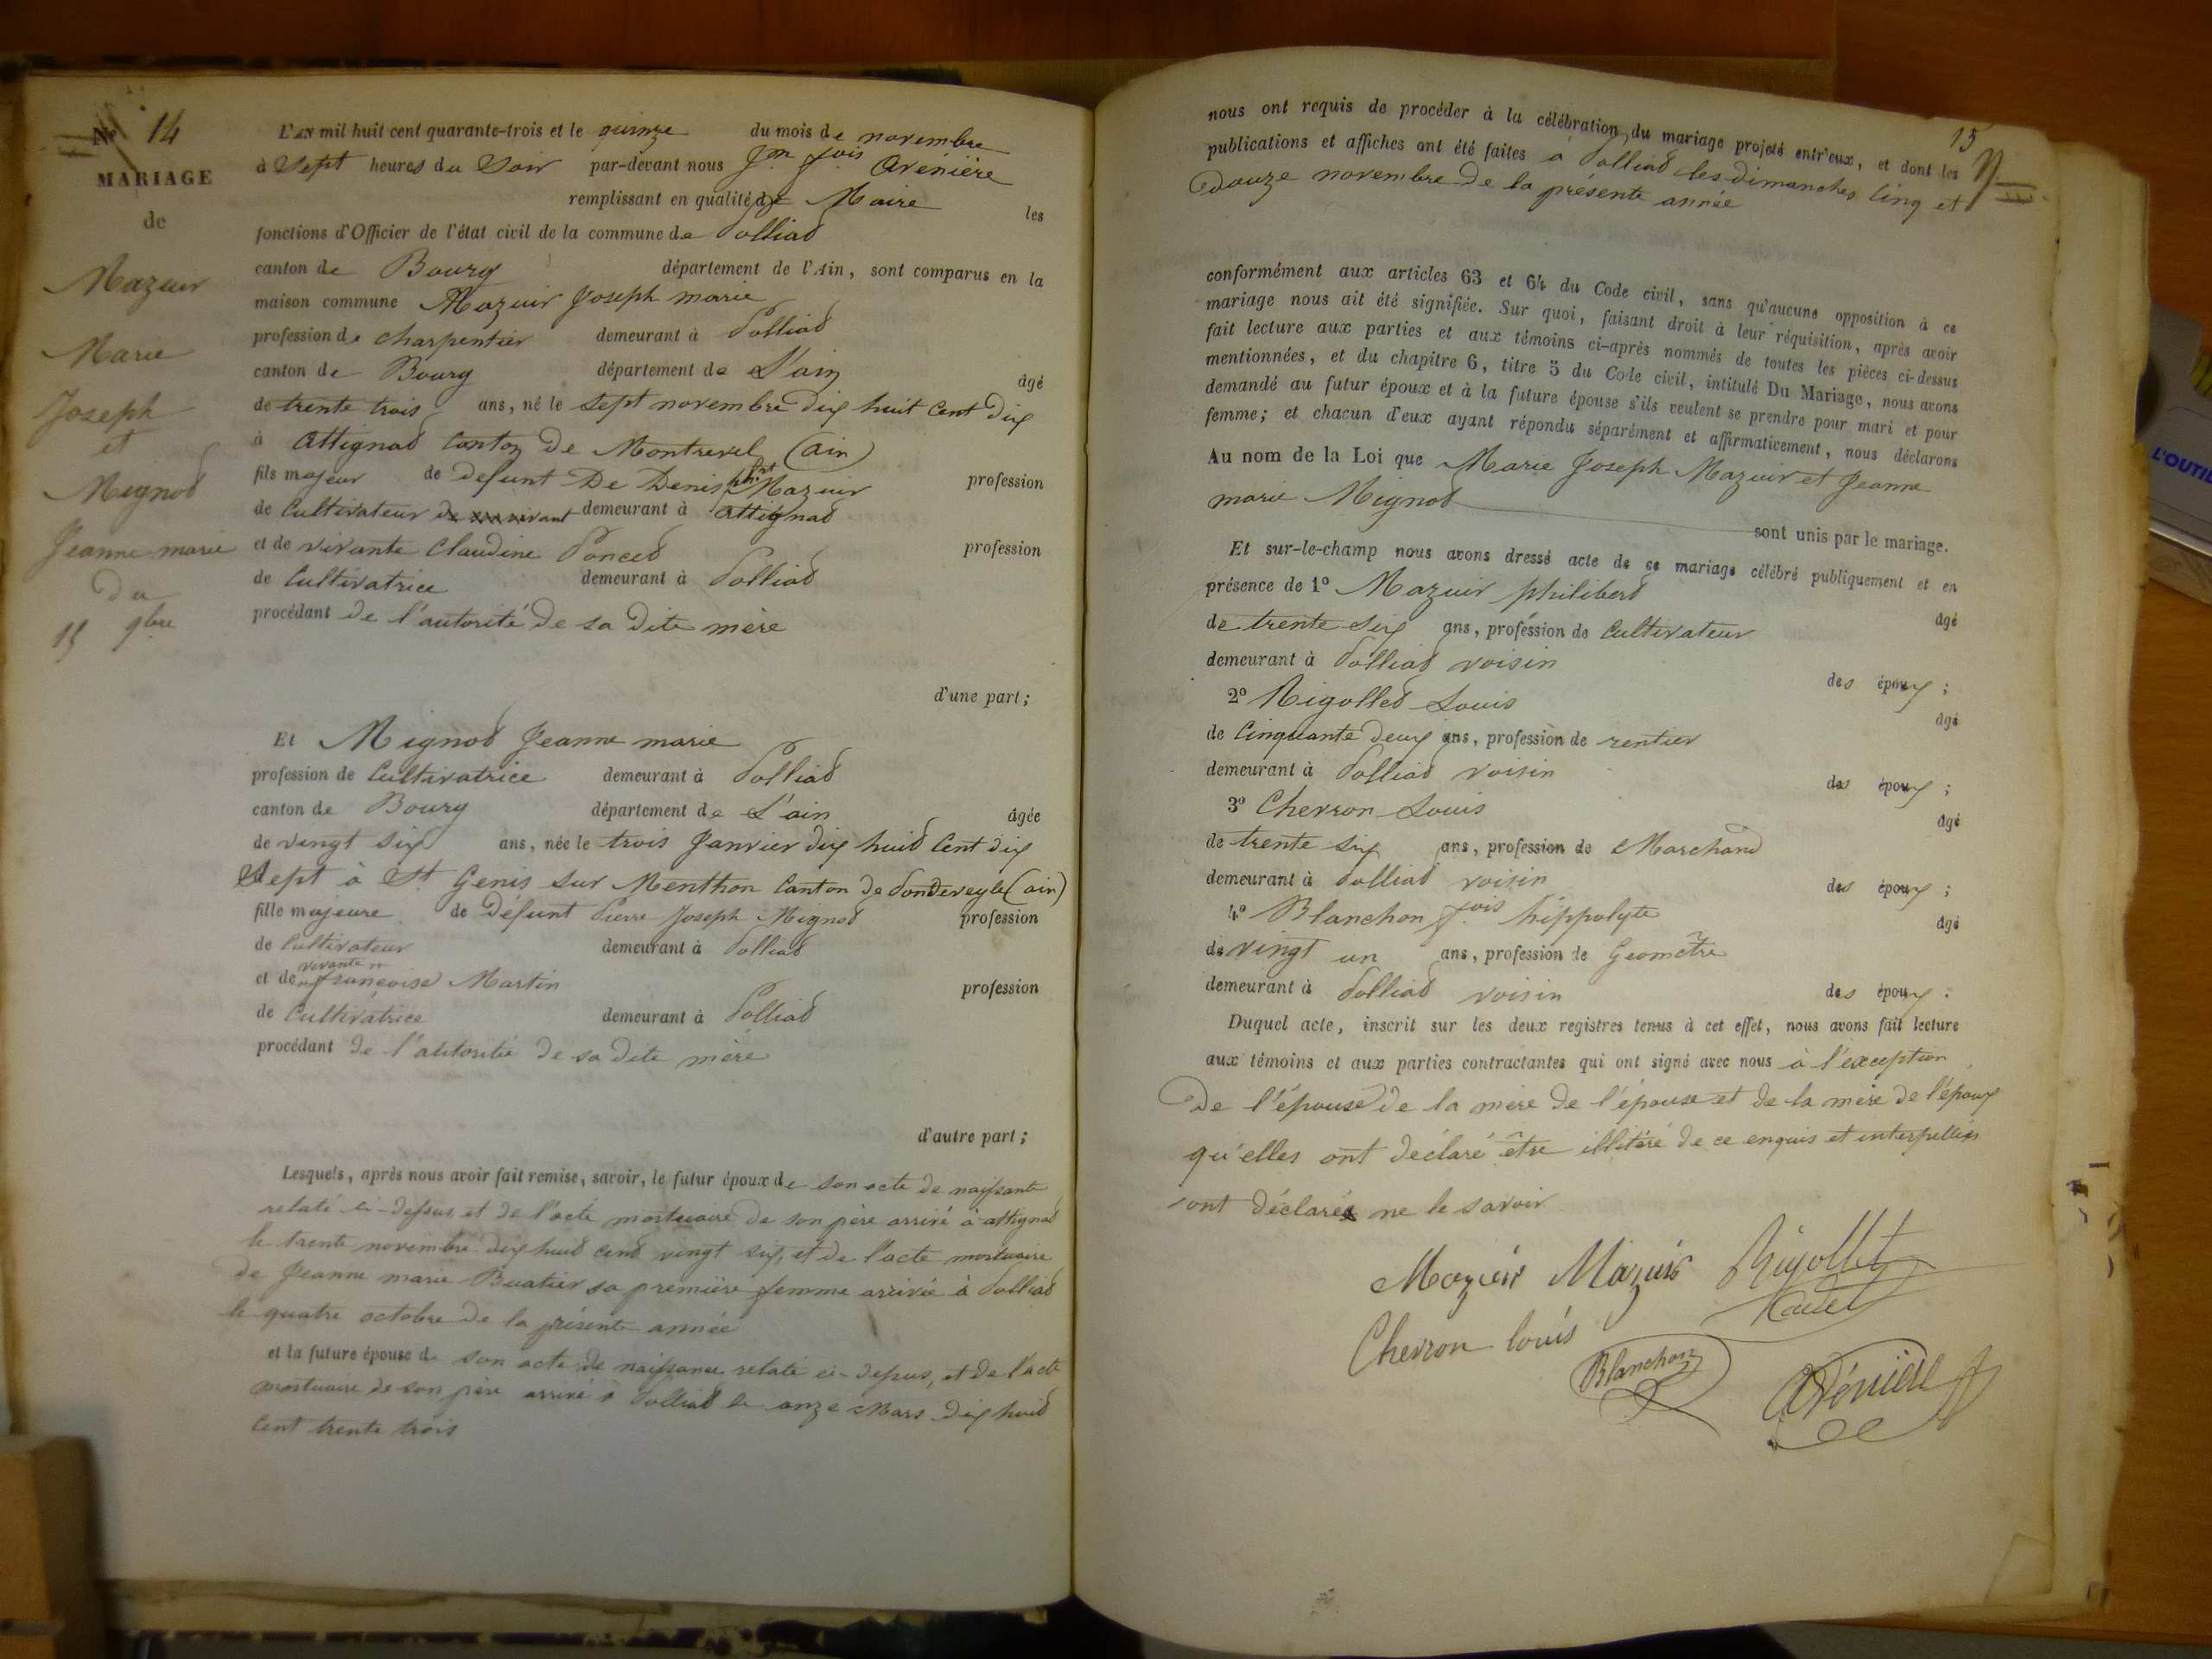 No 14
MARIAGE
de
Mazuir
Marie
Joseph
et
Mignot
Jeanne marie
du
15 9bre
L'AN mil huit cent quarante-trois et le quinze du mois de novembre
à Sept heures du Soir par-devant nous Jn fois Avénière
remplissant en qualité de Maire les
fonctions d'Officier de l'état civil de la commune de Polliat
canton de Bourg département de l'Ain, sont comparus en la
maison commune Mazuir Joseph marie
profession de charpentier demeurant à Polliat
canton de Bourg département de L'ain âgé
de trente trois ans, né le sept novembre dix huit cent dix
à Attignat canton de Montrevel (ain)
fils majeur de defunt De Denis pht Mazuir profession
de Cultivateur demeurant à Attignat
et de vivante Claudine Poncet profession
de Cultivatrice demeurant à Polliat
procédant de l'autorité de sa dite mère
d'une part;
Et Mignot Jeanne marie
profession de Cultivatrice demeurant à Polliat
canton de Bourg département de L'ain âgée
de vingt six ans, née le trois Janvier dix huit Cent dix
Sept à St Genis sur Menthon Canton de Pondeveyle (ain)
fille majeure de Défunt Pierre Joseph Mignot profession
de Cultivateur demeurant à Polliat
et de vivante françoise Martin profession
de Cultivatrice demeurant à Polliat
procédant de l'autorité de sa dite mère
d'autre part;
Lesquels, après nous avoir fait remise, savoir, le futur époux de son acte de naissante
relaté ci-dessus et de l'acte mortuaire de son père arrivé à attignat
le trente novembre dix huit cent vingt six, et de l'acte mortuaire
de Jeanne marie Buatier sa première femme arrivée à Polliat
le quatre octobre de la présente année
et la future épouse de son acte de naissance relaté ci-dessus, et de l'acte
mortuaire de son père arrivé à Polliat le onze Mars dix huit
Cent trente trois
15
nous ont requis de procéder à la célébration du mariage projeté entr'eux, et dont les
publications et affiches ont été faites à Polliat les dimanches Cinq et
Douze novembre de la présente année
conformément aux articles 63 et 64 du Code civil, sans qu'aucune opposition à ce
mariage nous ait été signifiée. Sur quoi, faisant droit à leur réquisition, après avoir
fait lecture aux parties et aux témoins ci-après nommés de toutes les pièces ci-dessus
mentionnées, et du chapitre 6, titre 5 du Code civil, intitulé Du Mariage, nous avons
demandé au futur époux et à la future épouse s'ils veulent se prendre pour mari et pour
femme; et chacun d'eux ayant répondu séparément et affirmativement, nous déclarons
Au nom de la Loi que Marie Joseph Mazuir et Jeanne
marie Mignot
sont unis par le mariage.
Et sur-le-champ nous avons dressé acte de ce mariage célébré publiquement et en
présence de 1o Mazuir philibert
âgé
de trente six ans, profession de Cultivateur
demeurant à Polliat voisin des époux;
2o Rigollet Louis
âgé
de Cinquante deux ans, profession de rentier
demeurant à Polliat voisin des époux;
3o Chevron Louis
âgé
de trente six ans, profession de Marchand
demeurant à Polliat voisin des époux;
4o Blanchon fois hippolyte
âgé
de vingt un ans, profession de Geomètre
demeurant à Polliat voisin des époux.
Duquel acte, inscrit sur les deux registres tenus à cet effet, nous avons fait lecture
aux témoins et aux parties contractantes qui ont signé avec nous à l'exception
De l'épouse de la mère de l'épouse et de la mère de l'époux
qu'elles ont déclaré être illitéré de ce enquis et interpellées
ont déclarés ne le savoir
Mazuir Mazuir Rigollet
Cadet
Chevron louis
Blanchon
Avénière
L'OUTIL